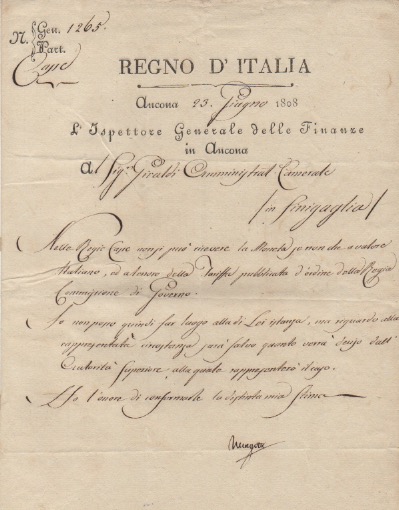 N. Gen. 1265.
Part.
Casse
REGNO D'ITALIA
Ancona 23. Giugno 1808
L'Ispettore Generale delle Finanze
in Ancona
Al Sig.r Giraldi Amministrat. Camerale
in Sinigaglia
Nelle Regie Casse non si può ricevere la Moneta se non che a valore
Italiano, ed a tenore della Tariffa pubblicata d'ordine della Regia
Commissione di Governo.
Io non posso quindi far luogo alla di Lei istanza, ma riguardo alla
rappresentata circostanza sarà salvo quanto verrà deciso dall'
Autorità Superiore, alla quale rappresenterò il caso.
Ho l'onore di confermarle la distinta mia stima